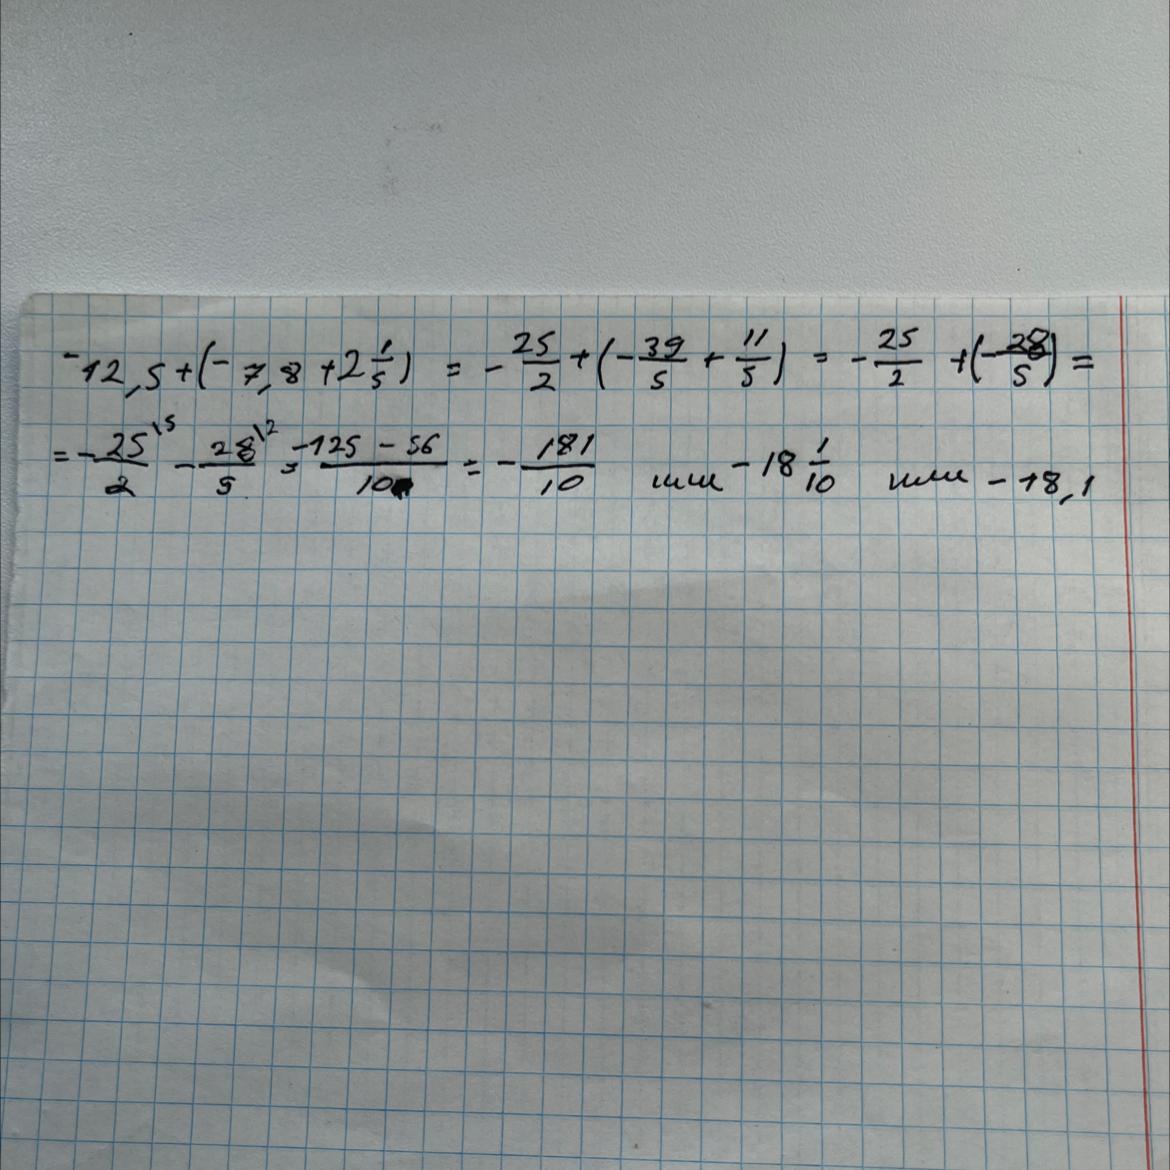 -12,5 + (-7,8 + 2 1/5) = - 25/2 + (- 39/5 + 11/5) = - 25/2 + (- 28/5) =
= - 25\5/2 - 28\2/5 = -125 - 56/10 = - 181/10 или - 18 1/10 или - 18,1